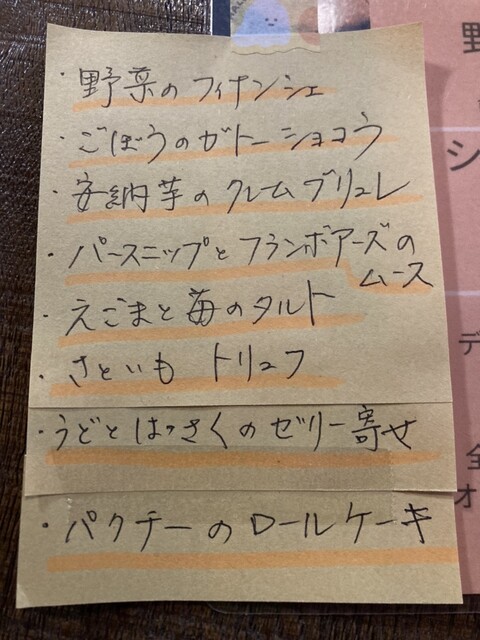 ・野菜のフィナンシェ
・ごぼうのガトーショコラ
・安納芋のクレームブリュレ
・パースニップとフランボアーズの
ムース
・えごまと苺のタルト
・さといも トリュフ
・うどとはっさくのゼリー寄せ
・パクチーのロールケーキ
野
シ
デ
全
オ